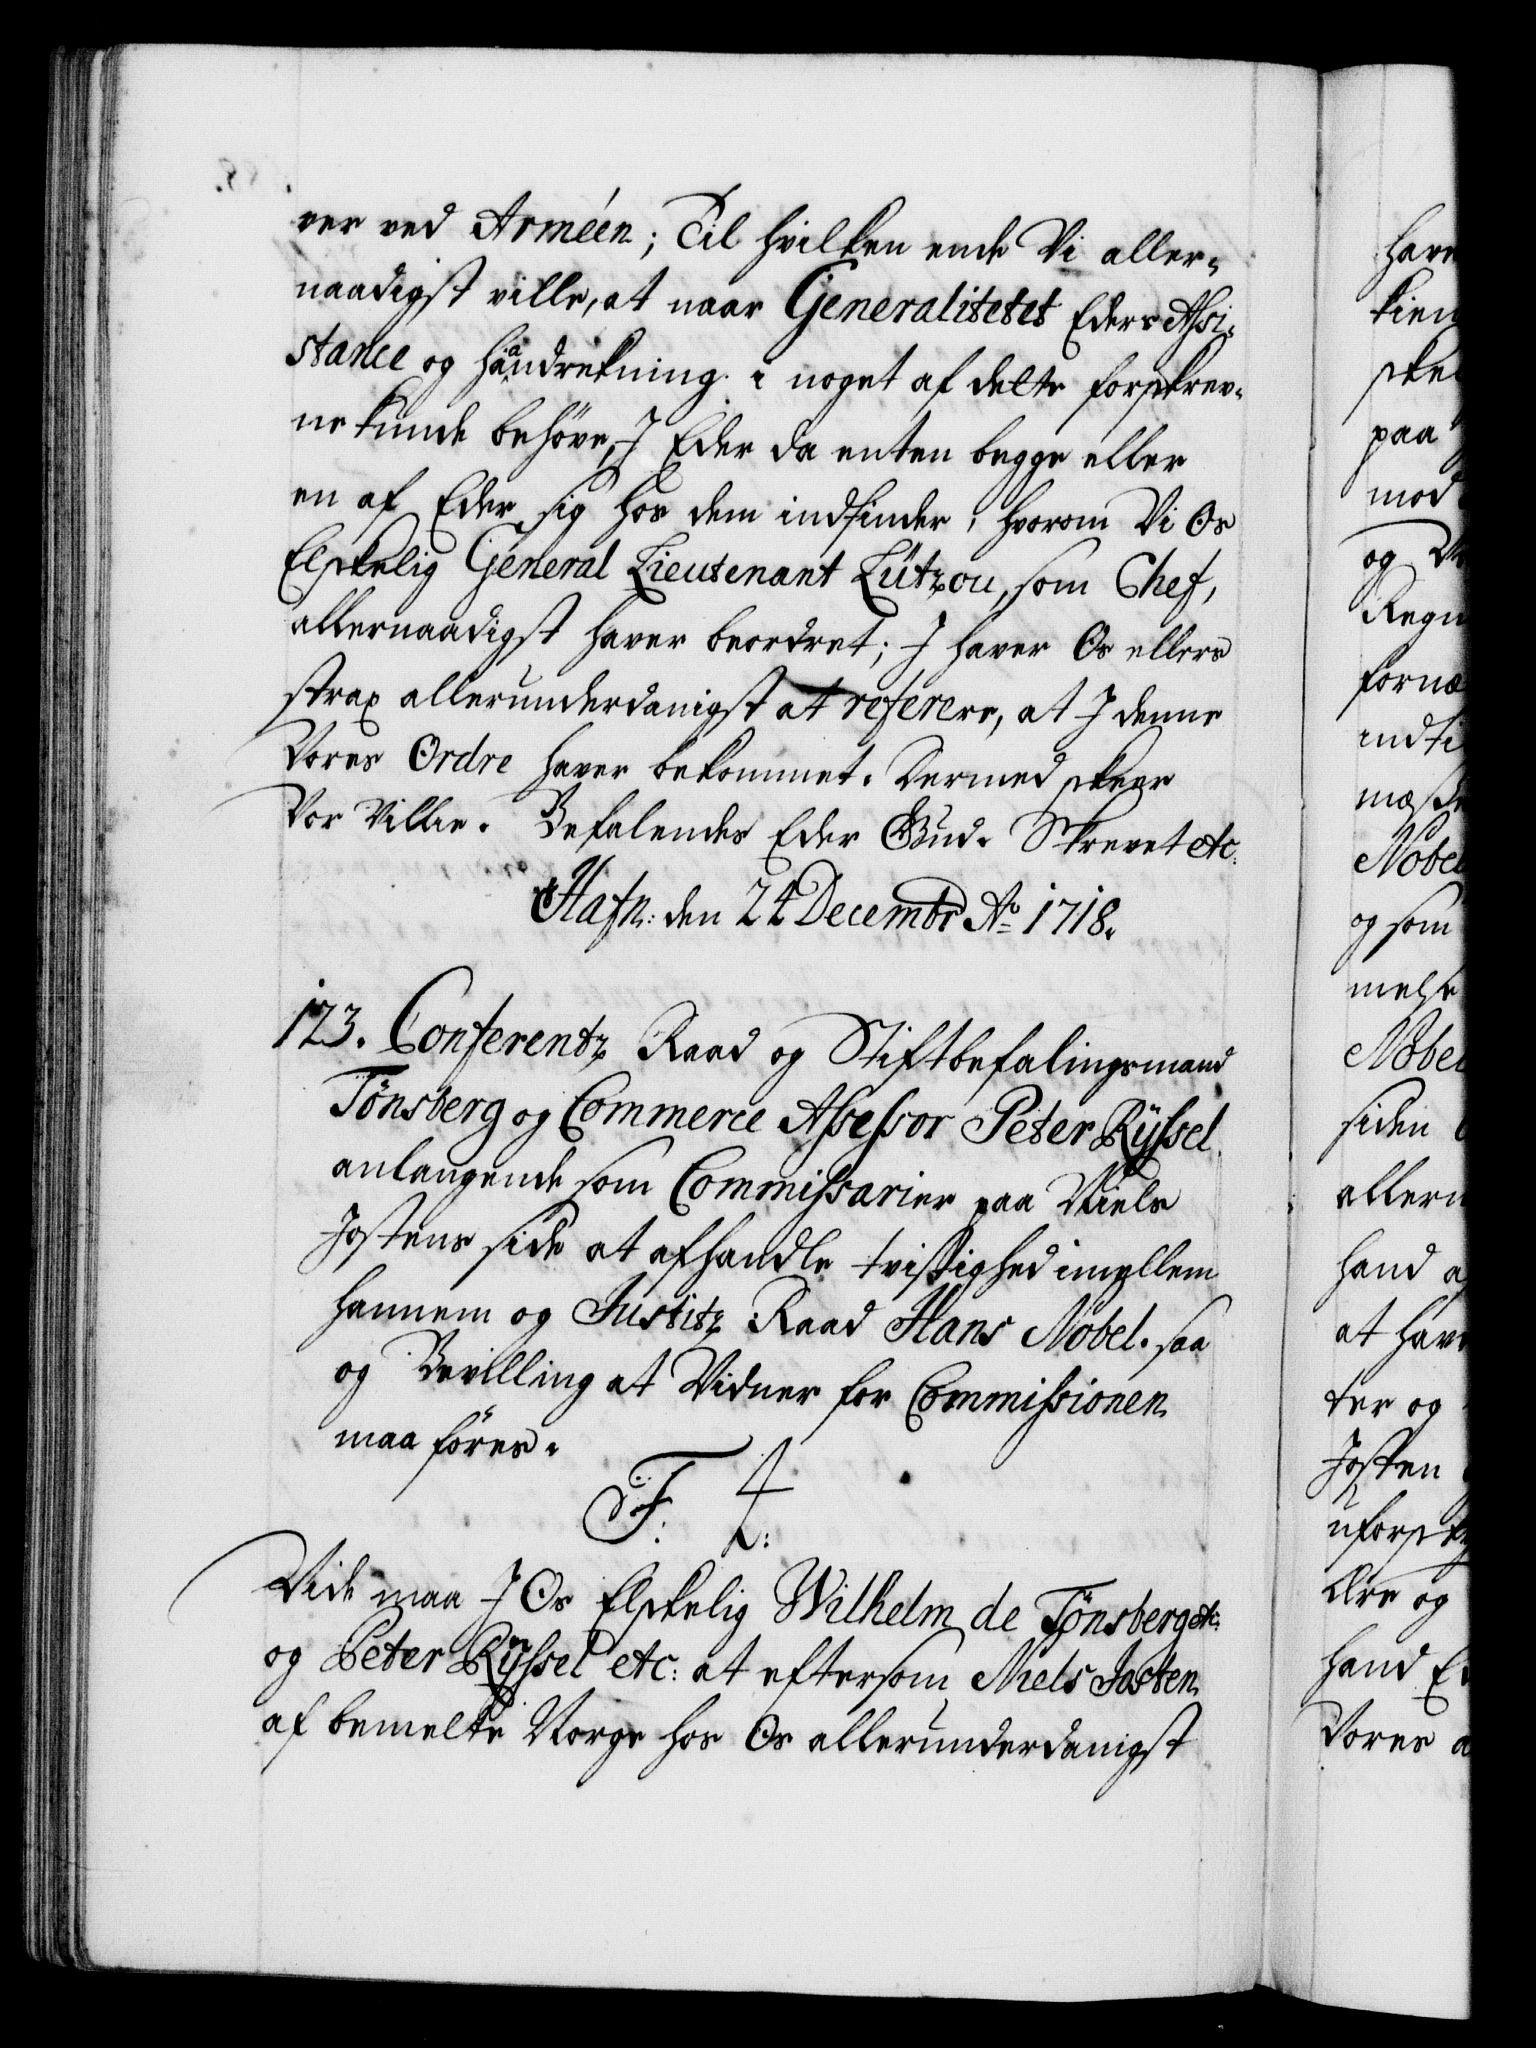 ver ved Arméen; Til hvilken ende Vi aller-
naadigst ville, at naar Generalitetet Eders Assi-
stance og Haandrekning i noget af dette forskrev-
ne kunde behöve, I Eder da enten begge eller
en af Eder sig hos dem indfinder, hvorom Vi Os
Elskelig General Lieutenant Lützou, som Chef,
allernaadigst haver beordret; I haver Os ellers
strax allerunderdanigst at referere, at I denne
Vores Ordre haver bekommet. Dermed skeer
Vor Villie. Befalendes Eder Gud. Skrevet etc:
Hafn: den 24 Decembr Ao 1718.
123. Conferentz Raad og Stiftbefalingsmand
Tönsberg og Commerce Assessor Peter Ryssel
anlangende som Commissarier paa Niels
Jostens side at afhandle tvistighed imellem
hannem og Justitz Raad Hans Nobel. saa
og Bevilling at Vidner for Commissionen
maa föres.
F. 4.
Vide maa I Os Elskelig Wilhelm de Tönsberg etc:
og Peter Ryssel etc: at eftersom Niels Josten
af bemelte Norge hos Os allerunderdanigst